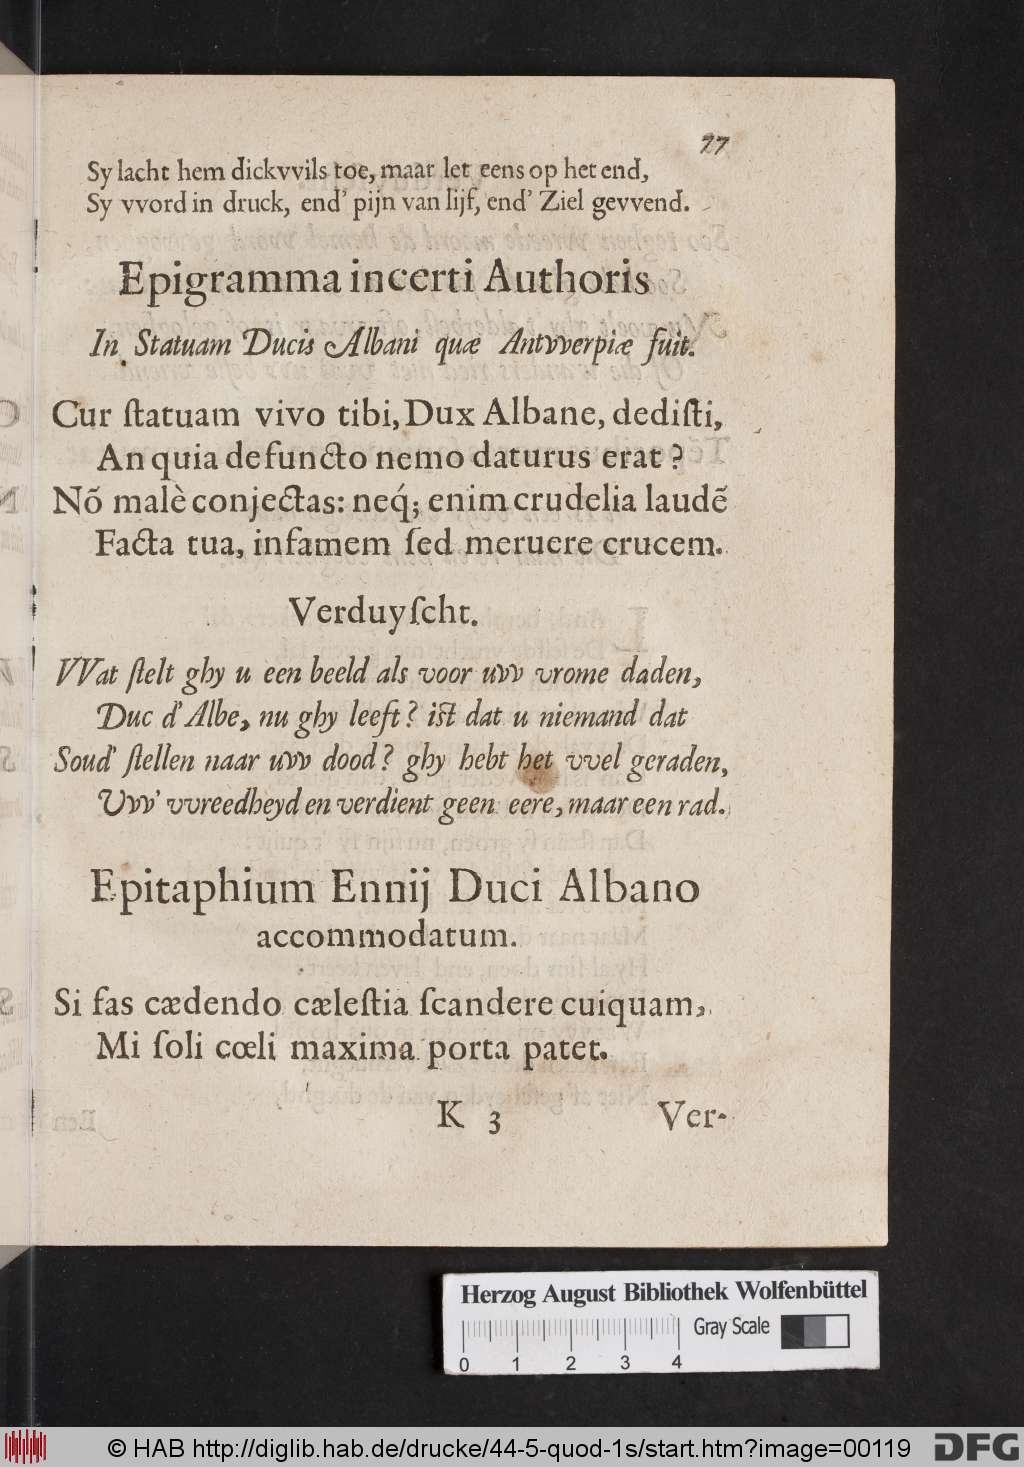 77
Sy lacht hem dickvvils toe, maar let eens op het end,
Sy vvord in druck, end' pijn van lijf, end' Ziel gevvend.
Epigramma incerti Authoris
In Statuam Ducis Albani quæ Antvverpiæ fuit.
Cur ſtatuam vivo tibi, Dux Albane, dediſti,
An quia defuncto nemo daturus erat?
Nõ malè conjectas: neq́; enim crudelia laudẽ
Facta tua, infamem ſed meruere crucem.
Verduyſcht.
VVat ſtelt ghy u een beeld als voor uvv vrome daden,
Duc d'Albe, nu ghy leeft? iſt dat u niemand dat
Soud' ſtellen naar uvv dood? ghy hebt het vvel geraden,
Uvv' vvreedheyd en verdient geen eere, maar een rad.
Epitaphium Ennij Duci Albano
accommodatum.
Si fas cædendo cæleſtia ſcandere cuiquam,
Mi ſoli cœli maxima porta patet.
K 3 Ver-
Herzog August Bibliothek Wolfenbüttel
Gray Scale
0 1 2 3 4
© HAB http://diglib.hab.de/drucke/44-5-quod-1s/start.htm?image=00119
DFG